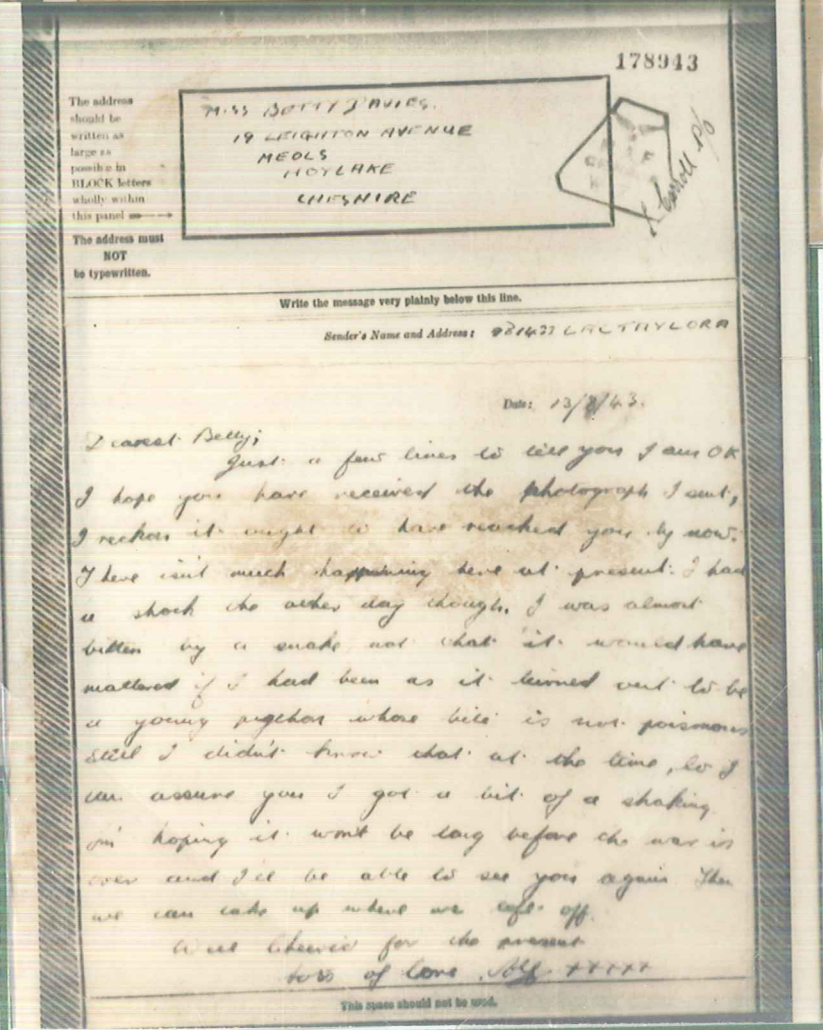 178943
The address
should be
written as
large as
possible in
BLOCK letters
wholly within
this panel
The address must
NOT
be typewritten.
MISS BETTY DAVIES.
19 LEIGHTON AVENUE
MEOLS
HOYLAKE
CHESHIRE
Write the message very plainly below this line.
Sender's Name and Address: LAC TAYLOR A
Date: 13/8/43.
Dearest Betty;
Just a few lines to tell you I am OK
I hope you have received the photograph I sent,
I reckon it ought to have reached you by now.
There isn't much happening here at present. I had
a shock the other day though. I was almost
bitten by a snake not that it would have
mattered if I had been as it turned out to be
a young pygthon whose bite is not poisonous
still I didn't know that at the time, so I
can assure you I got a bit of a shaking.
I'm hoping it won't be long before the war is
over and I'll be able to see you again. Then
we can take up where we left off.
Well Cheerio for the present
tons of love Alf. xxxxx
This space should not be used.